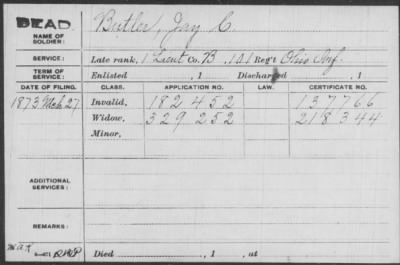 DEAD.
NAME OF SOLDIER: Butler, Jay C.
SERVICE: Late rank, 1 Lieut Co. B, 101 Reg't Ohio Inf.
TERM OF SERVICE: Enlisted , 1 Discharged , 1
DATE OF FILING. CLASS. APPLICATION NO. LAW. CERTIFICATE NO.
1873 Mch 27 Invalid, 182 452 137766
Widow, 329 252 218344
Minor,
ADDITIONAL SERVICES:
REMARKS:
Died , 1 , at